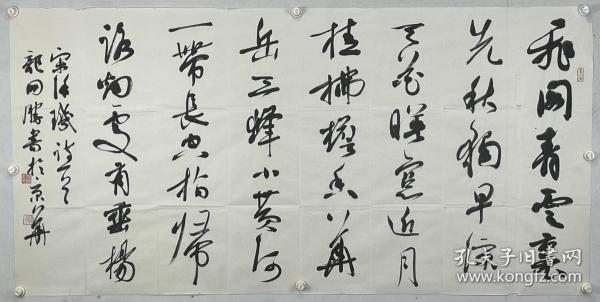 飛閣青雲裏
先秋獨早涼
天花映窗近月
桂拂檐香華
岳三峰小黃河
一帶長空指歸
路烟處有垂楊
宋許璣詩一首
龍国勝書於京華
孔夫子旧书网
www.kongfz.com